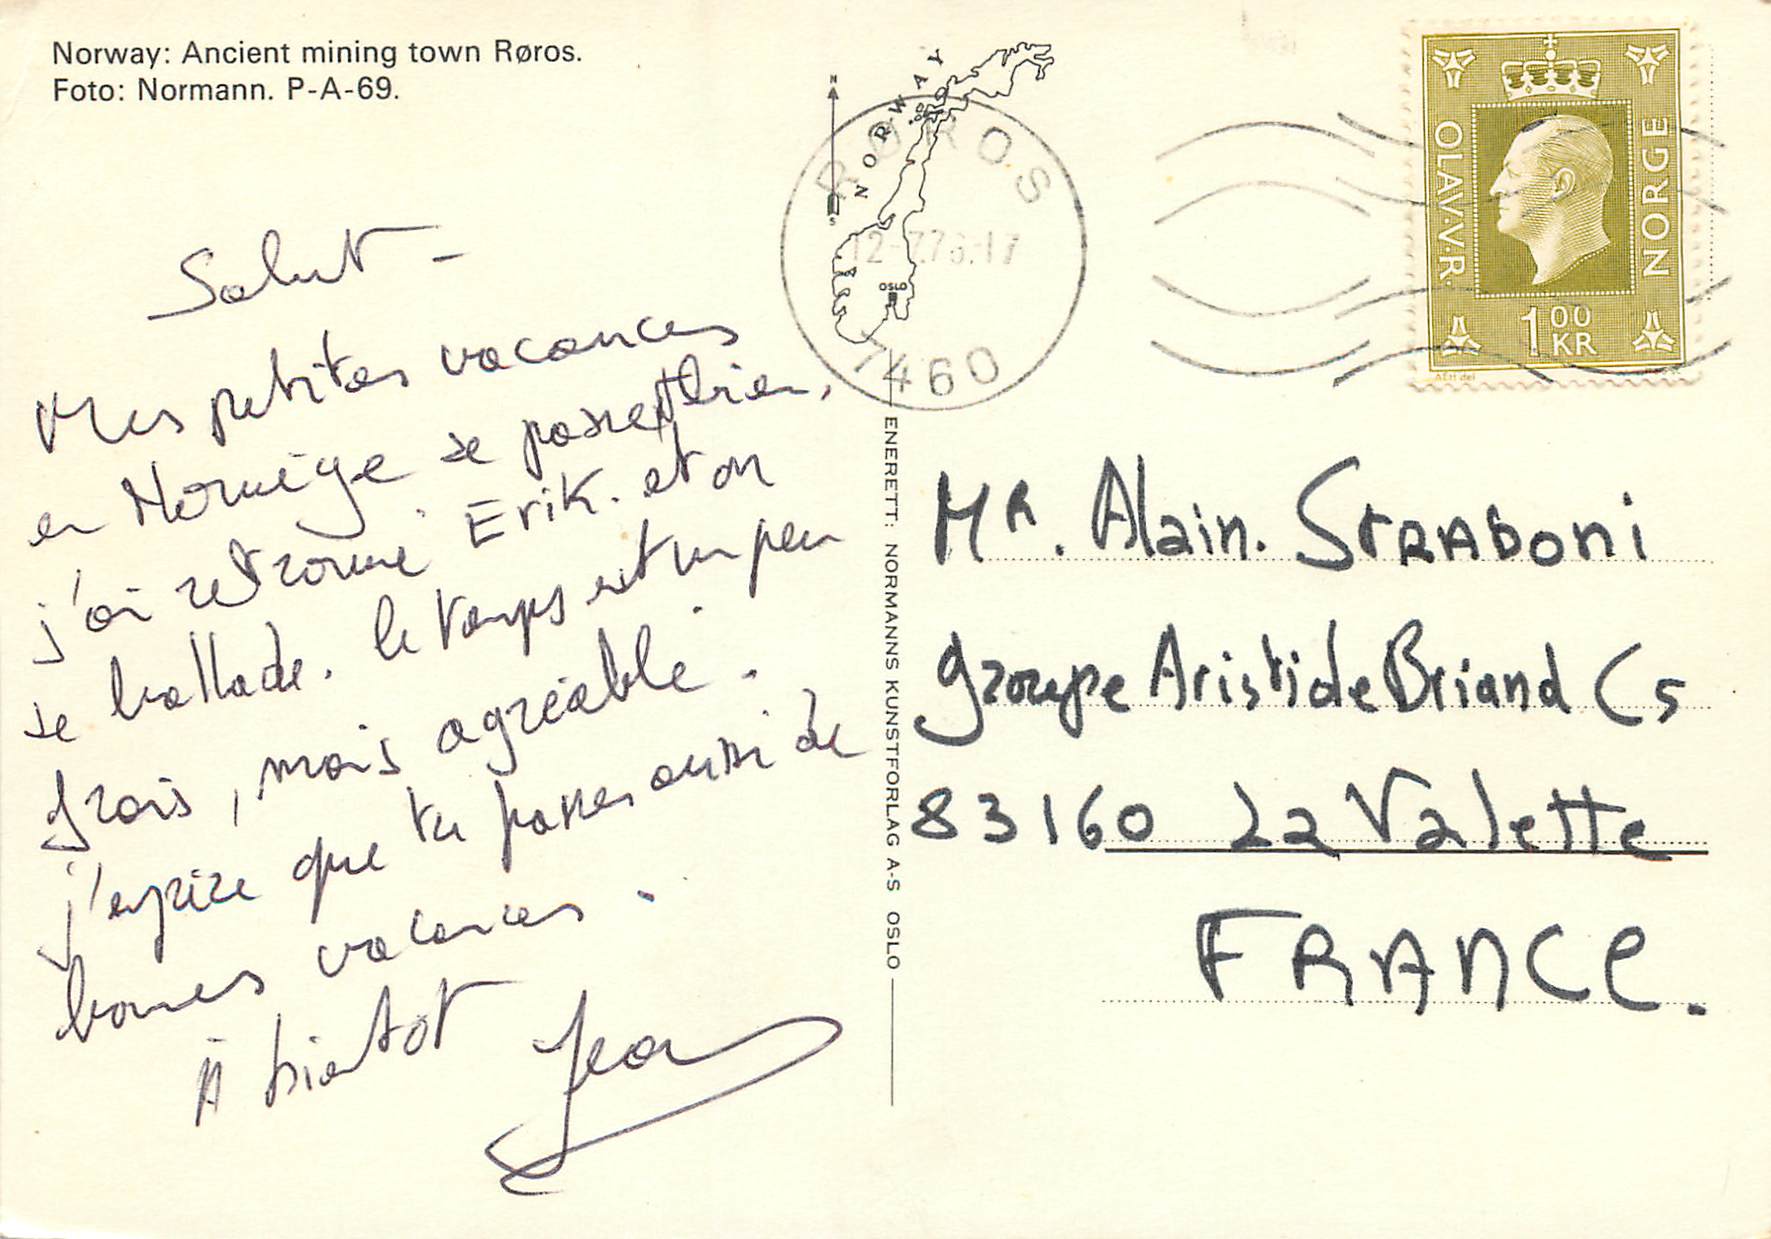 Norway: Ancient mining town Røros.
Foto: Normann. P-A-69.
NORWAY
N
S
OSLO
RØROS
12-7.76.17
7460
OLAV.V.R.
NORGE
1 00 KR
Salut -
Mes petites vacances
en Norvège se passent bien,
j'ai retrouvé Erik. et on
se ballade. le temps est un peu
frais, mais agréable.
j'espère que tu passes aussi de
bonnes vacances.
A bientot Jean
ENERETT: NORMANNS KUNSTFORLAG A-S OSLO
Mr. Alain. Straboni
groupe Aristide Briand C5
83160 La Valette
FRANCE.